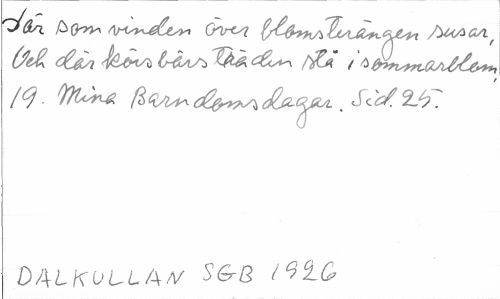 Där som vinden över blomsterängen susar,
Och där körsbärsträden stå i sommarblom,
19. Mina Barndomsdagar. Sid. 25.
DALKULLAN SGB 1926